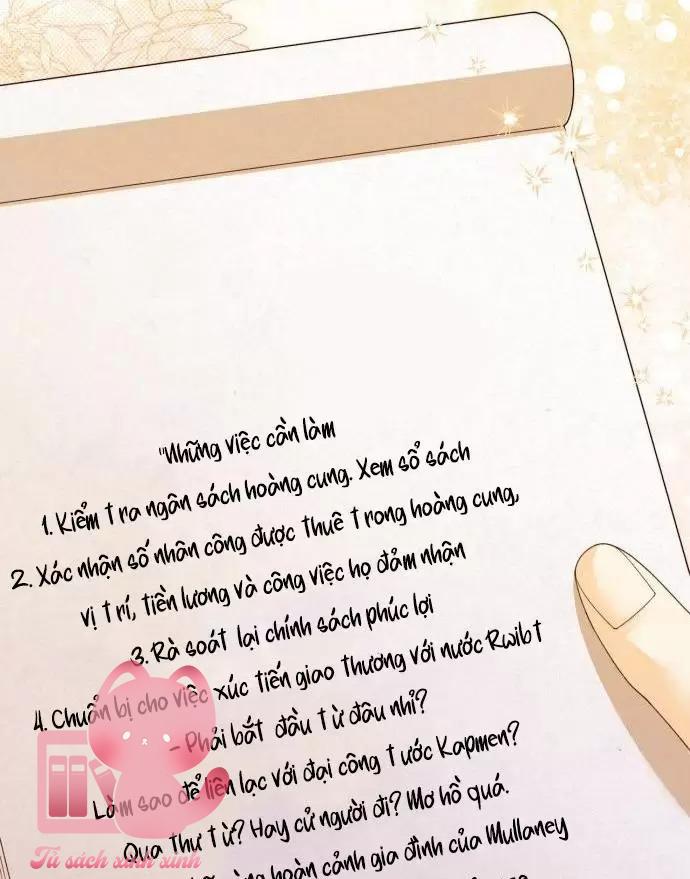 "Những việc cần làm
1. Kiểm tra ngân sách hoàng cung. Xem sổ sách
2. Xác nhận số nhân công được thuê trong hoàng cung,
vị trí, tiền lương và công việc họ đảm nhận
3. Rà soát lại chính sách phúc lợi
4. Chuẩn bị cho việc xúc tiến giao thương với nước Rwibt
- Phải bắt đầu từ đâu nhỉ?
Làm sao để liên lạc với đại công tước Kapmen?
Qua thư từ? Hay cử người đi? Mơ hồ quá.
hoàn cảnh gia đình của Mullaney
Tủ sách xinh xinh